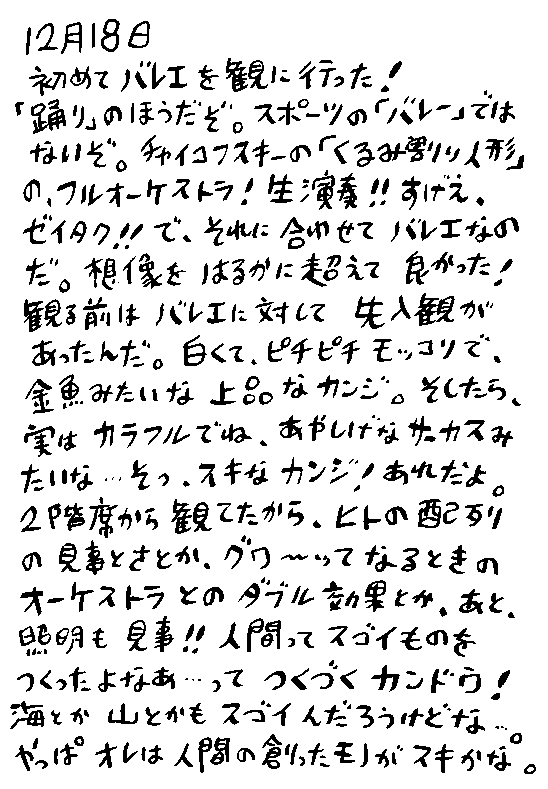 12月18日
初めてバレエを観に行った!
「踊り」のほうだぞ。スポーツの「バレー」では
ないぞ。チャイコフスキーの「くるみ割り人形」
の、フルオーケストラ!生演奏!!すげえ、
ゼイタク!!で、それに合わせてバレエなの
だ。想像をはるかに超えて良かった!
観る前はバレエに対して先入観が
あったんだ。白くて、ピチピチモッコリで、
金魚みたいな上品なカンジ。そしたら、
実はカラフルでね、あやしげなサーカスみ
たいな…そっ、スキなカンジ!あれだよ。
2階席から観てたから、ヒトの配列
の見事とさとか、グワ〜ってなるときの
オーケストラとのダブル効果とか、あと、
照明も見事!!人間ってスゴイものを
つくったよなあ…ってつくづくカンドウ!
海とか山とかもスゴイんだろうけどな…。
やっぱオレは人間の創ったモノがスキかな。